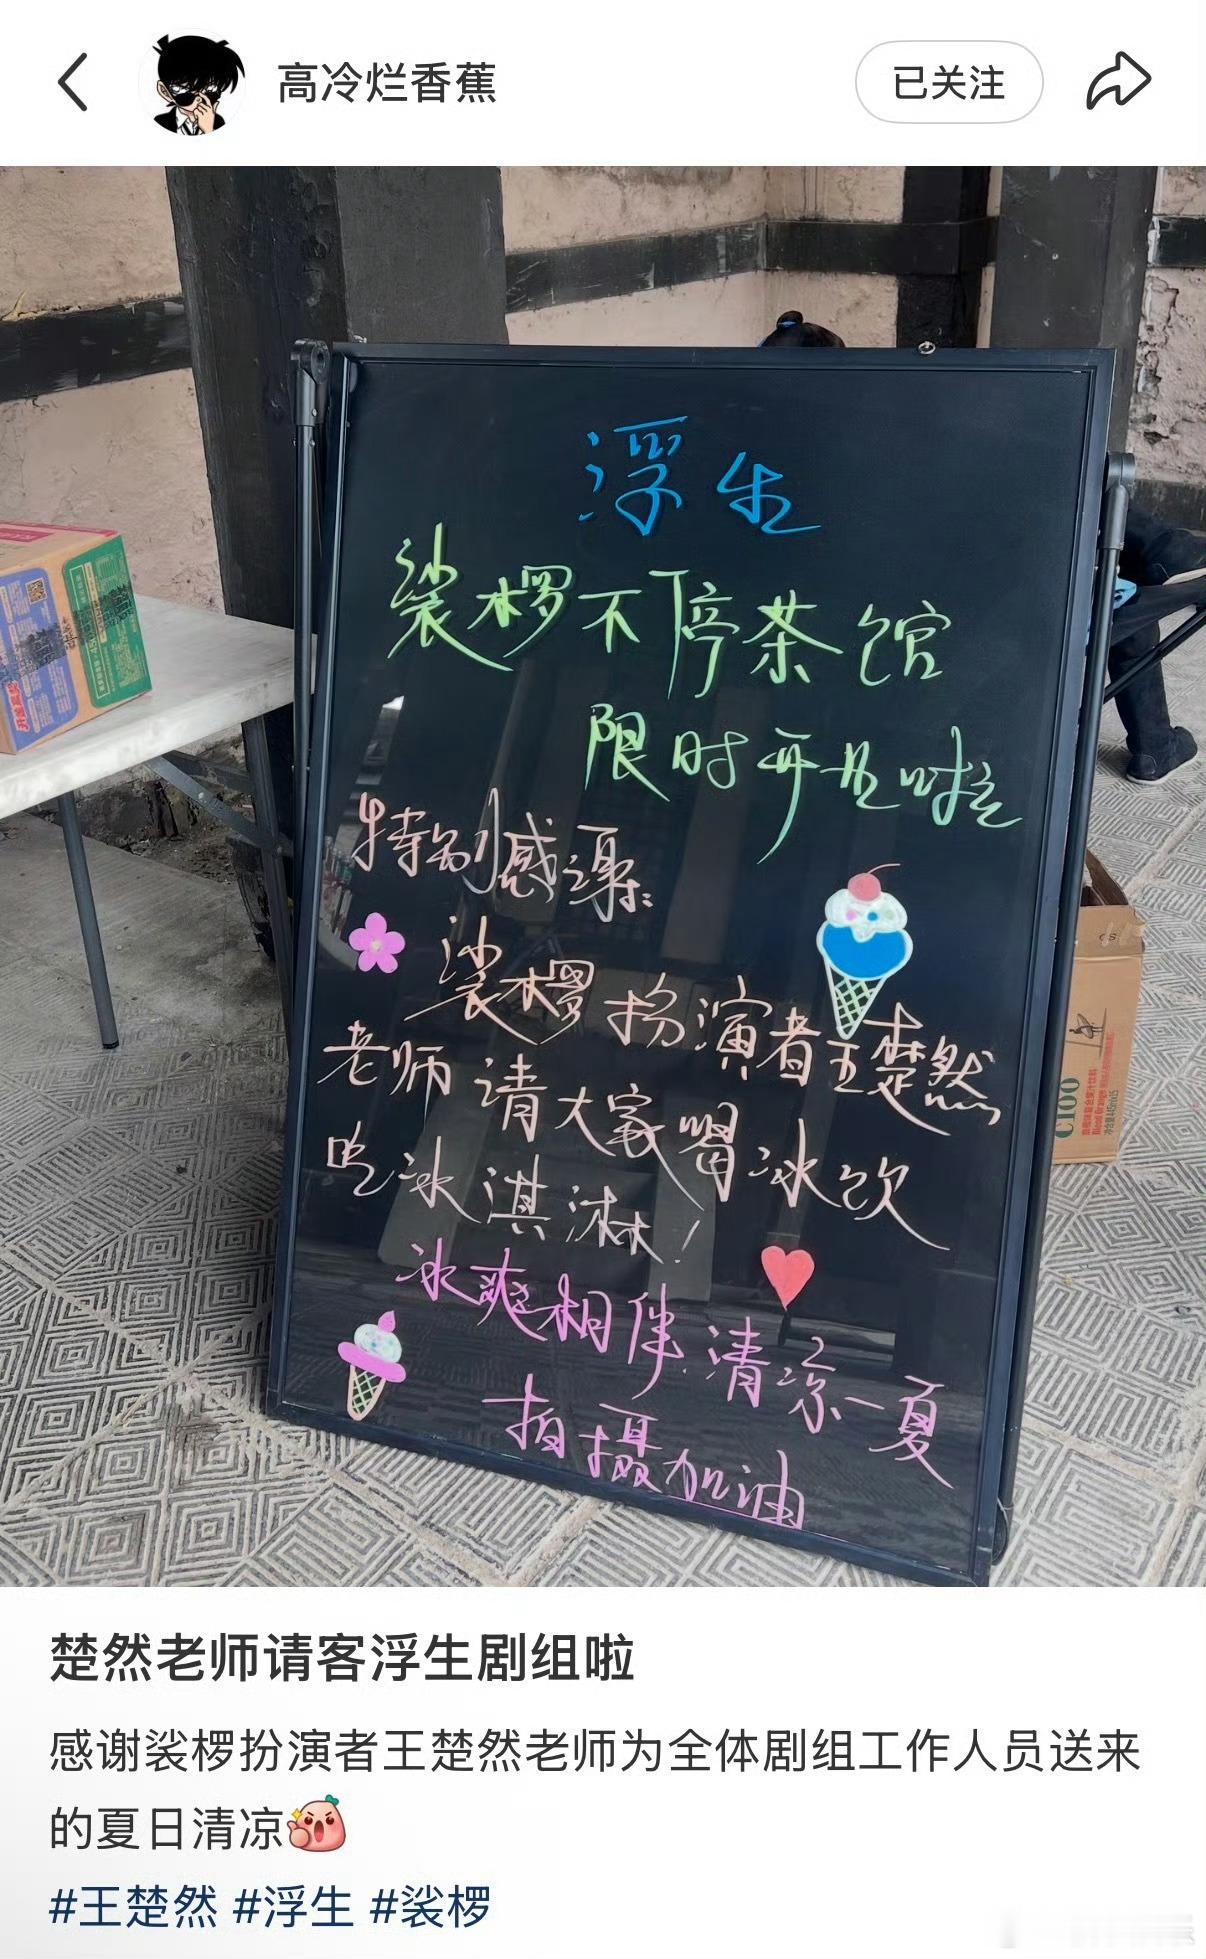 高冷烂香蕉
已关注
浮生
裟椤不停茶馆
限时开业啦
特别感谢:
裟椤扮演者王楚然
老师请大家喝冰饮
吃冰淇淋!
冰爽相伴 清凉一夏
拍摄加油
C100
楚然老师请客浮生剧组啦
感谢裟椤扮演者王楚然老师为全体剧组工作人员送来
的夏日清凉
#王楚然 #浮生 #裟椤